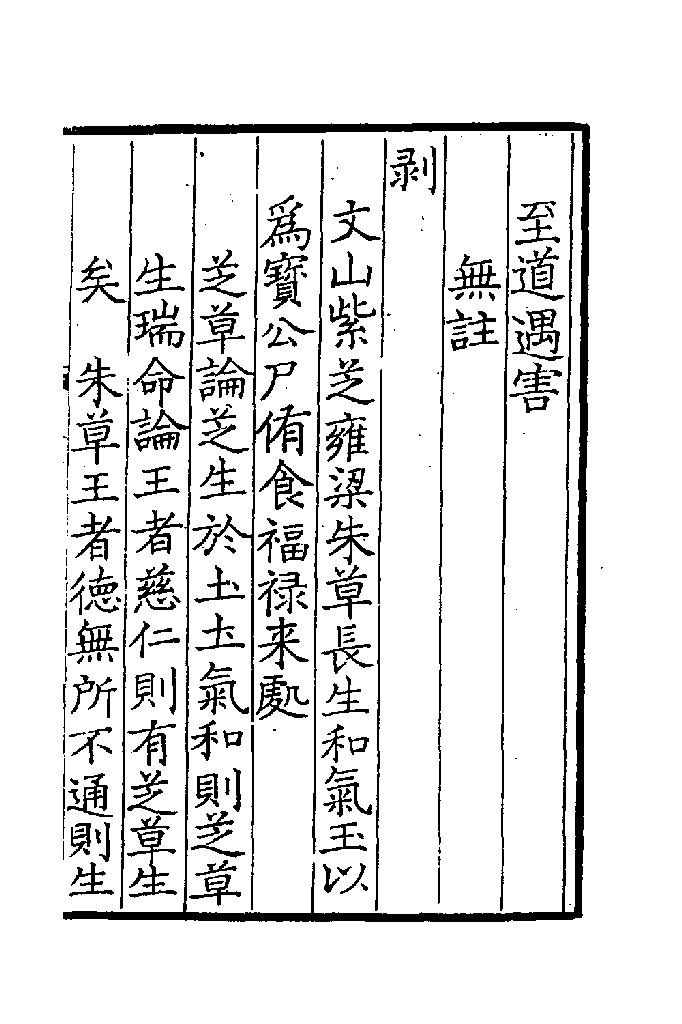 至道遇害
無註
剥
文山紫芝雍梁朱草長生和氣王以
爲寳公尸侑食福禄来處
芝草論芝生於土土氣和則芝草
生瑞命論王者慈仁則有芝草生
矣　朱草王者徳無所不通則生